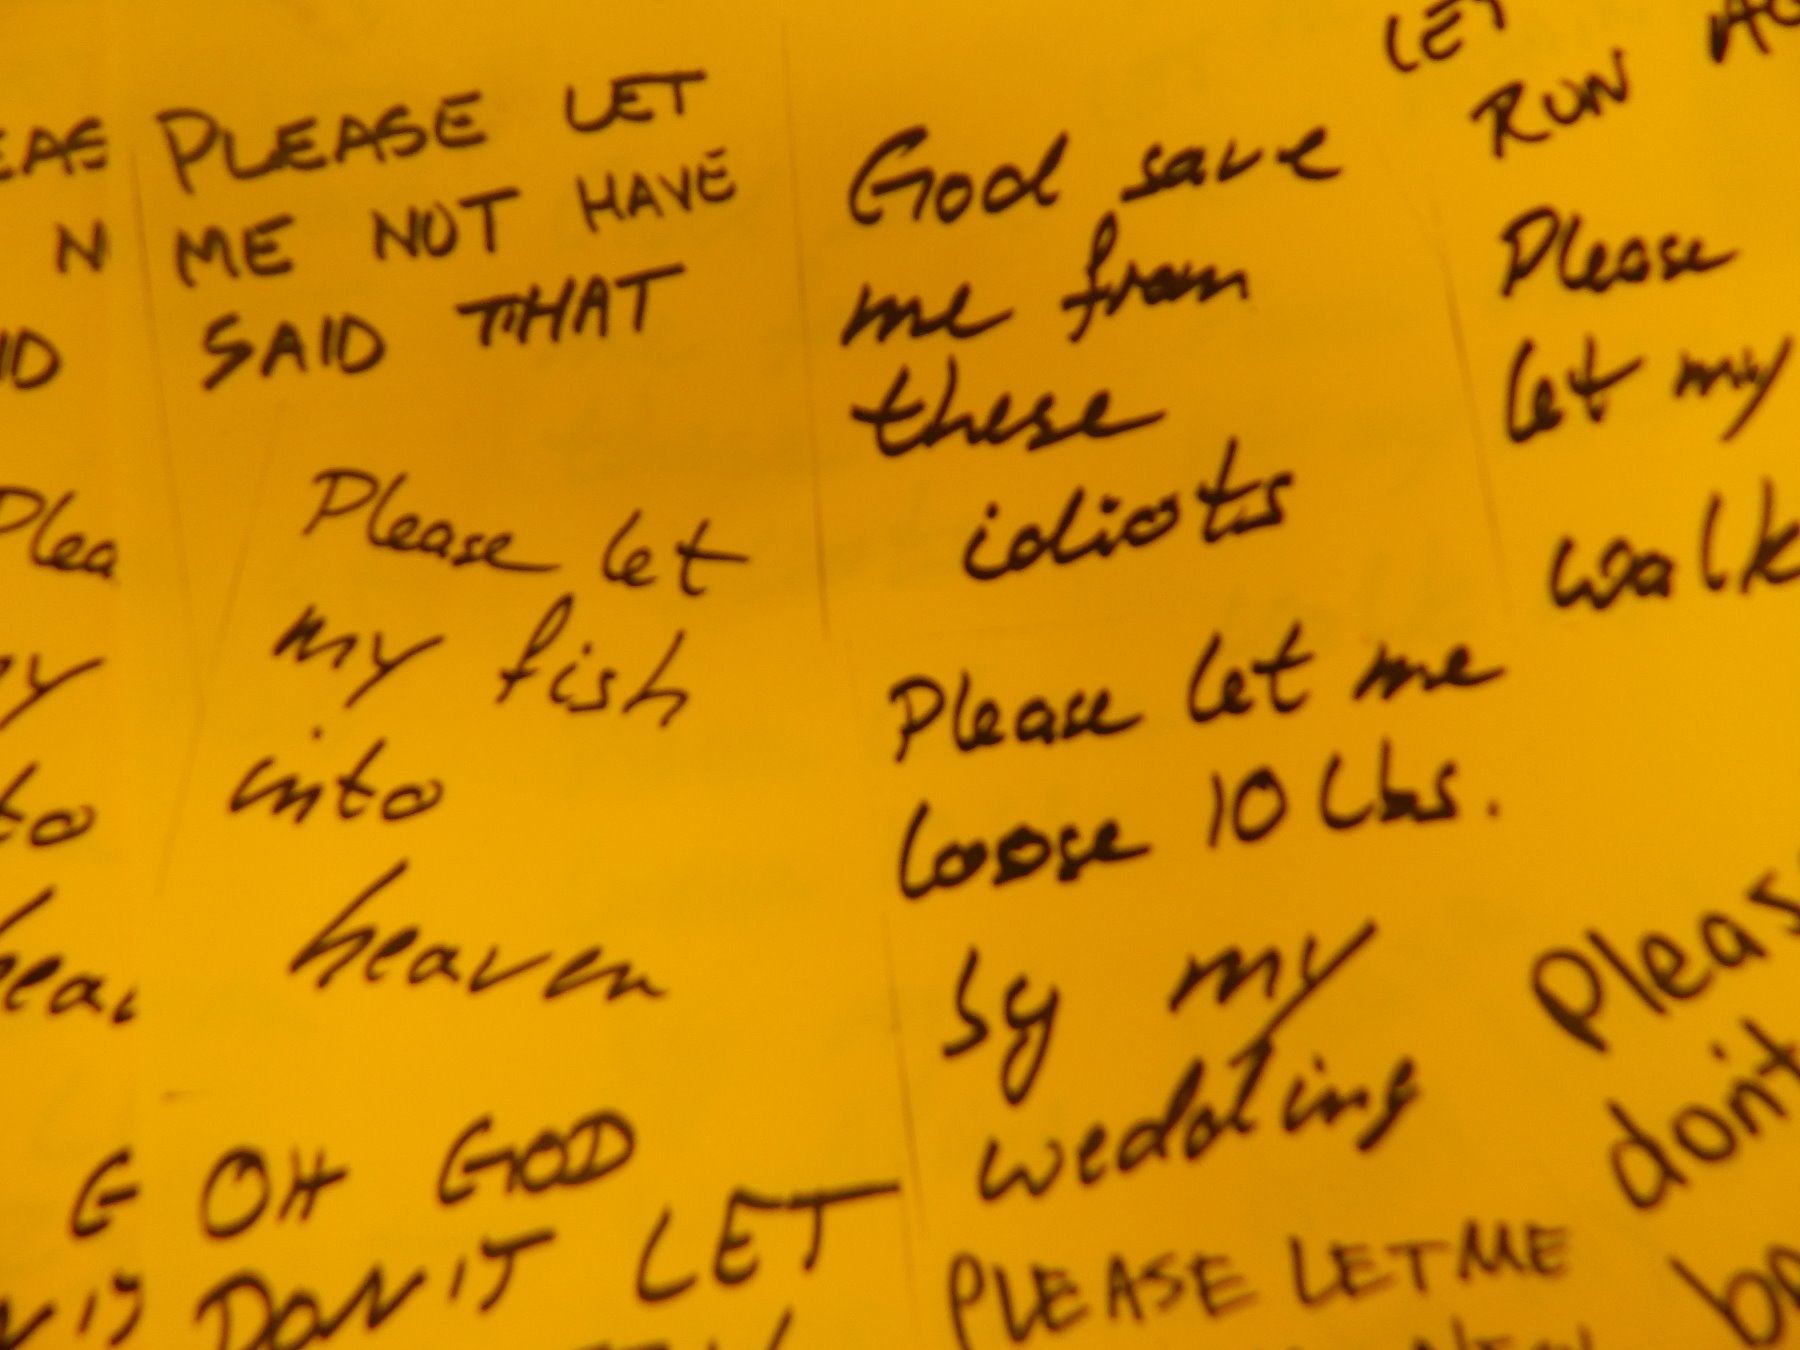 PLEASE LET
ME NOT HAVE
SAID THAT
Please let
my fish
into
heaven
OH GOD
DON'T LET
God save
me from
these
idiots
Please let me
loose 10 Lbs.
by my
wedding
PLEASE LET ME
LET
RUN
Please
let my
walk
Pleas
don't